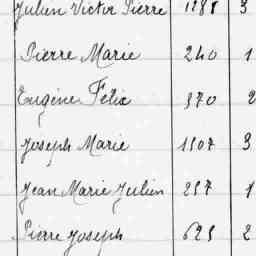 Julien Victor Pierre 1288 3
Pierre Marie 240 1
Eugène Félix 370 2
Joseph Marie 1507 3
Jean Marie Julien 257 1
Pierre Joseph 625 2